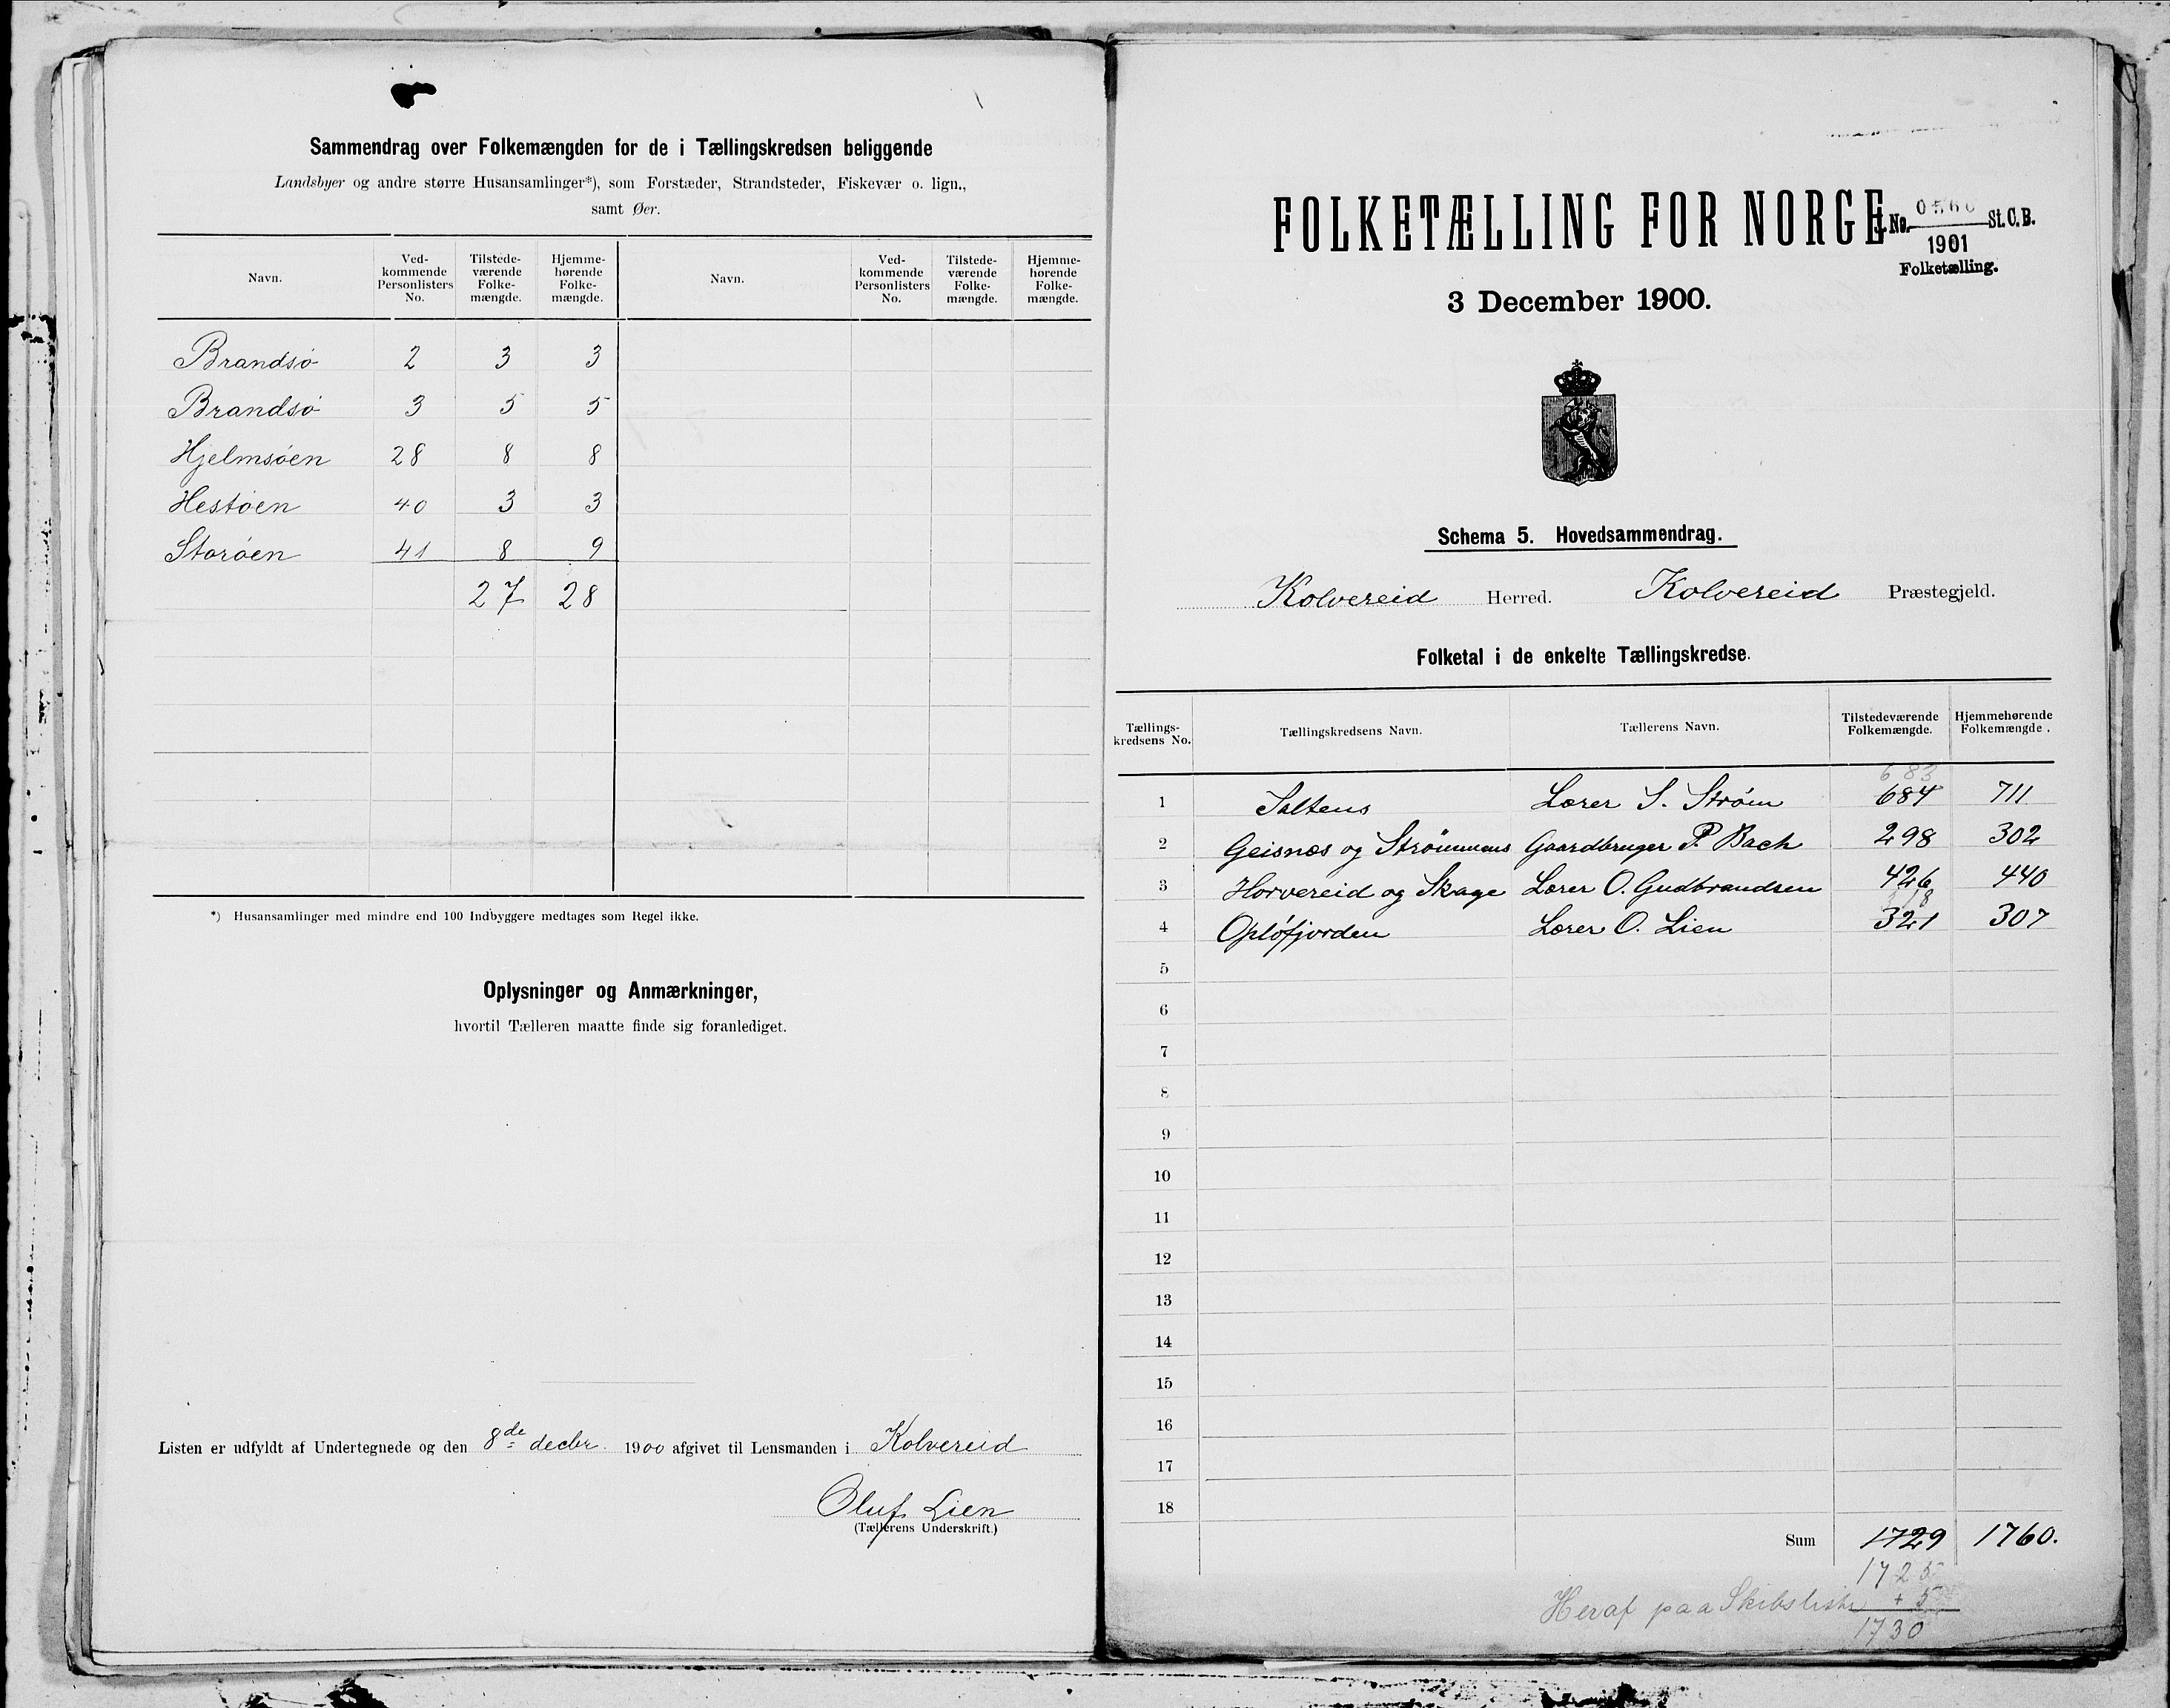 Sammendrag over Folkemængden for de i Tællingskredsen beliggende
Landsbyer og andre større Husansamlinger*), som Forstæder, Strandsteder, Fiskevær o. lign.,
samt Øer.
Navn. Ved-kommende Personlisters No. Tilstede-værende Folke-mængde. Hjemme-hørende Folke-mængde. Navn. Ved-kommende Personlisters No. Tilstede-værende Folke-mængde. Hjemme-hørende Folke-mængde.
Brandsø 2 3 3
Brandsø 3 5 5
Hjelmsøen 28 8 8
Hestøen 40 3 3
Storøen 41 8 9
27 28
*) Husansamlinger med mindre end 100 Indbyggere medtages som Regel ikke.
Oplysninger og Anmærkninger,
hvortil Tælleren maatte finde sig foranlediget.
Listen er udfyldt af Undertegnede og den 8de decbr. 1900 afgivet til Lensmanden i Kolvereid
Oluf Lien
(Tællerens Underskrift.)
FOLKETÆLLING FOR NORGE
J. No. 0560 St. C. B.
1901
Folketælling.
3 December 1900.
Schema 5. Hovedsammendrag.
Kolvereid Herred. Kolvereid Præstegjeld.
Folketal i de enkelte Tællingskredse.
Tællings-kredsens No. Tællingskredsens Navn. Tællerens Navn. Tilstedeværende Folkemængde. Hjemmehørende Folkemængde.
683
1 Saltens Lærer S. Strøm 684 711
2 Geisnæs og Strømmens Gaardbruger P. Bach 298 302
3 Horvereid og Skage Lærer O. Gudbrandsen 426 440
18
4 Opløfjorden Lærer O. Lien 321 307
5
6
7
8
9
10
11
12
13
14
15
16
17
18
Sum 1729 1760.
1725
Heraf paa Skibsliste + 5
1730